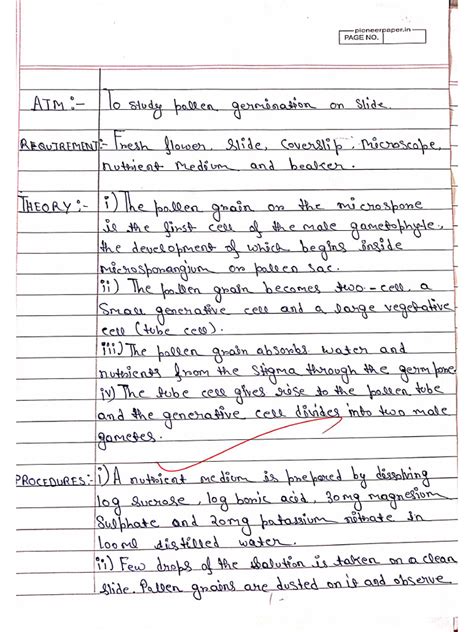 pioneerpaper.in
PAGE NO.
AIM :- To study pollen germination on slide.
REQUIREMENT:- Fresh flower, slide, coverslip, microscope,
nutrient medium and beaker.
THEORY :- i) The pollen grain or the microspore
is the first cell of the male gametophyte,
the development of which begins inside
microsporangium or pollen sac.
ii) The pollen grain becomes two-cell, a
small generative cell and a large vegetative
cell (tube cell).
iii) The pollen grain absorbs water and
nutrients from the stigma through the germ pore.
iv) The tube cell gives rise to the pollen tube
and the generative cell divides into two male
gametes.
PROCEDURES:- i) A nutrient medium is prepared by dissolving
10g sucrose, 10g boric acid, 30mg magnesium
sulphate and 20mg potassium nitrate in
100ml distilled water.
ii) Few drops of the solution is taken on a clean
slide. Pollen grains are dusted on it and observe